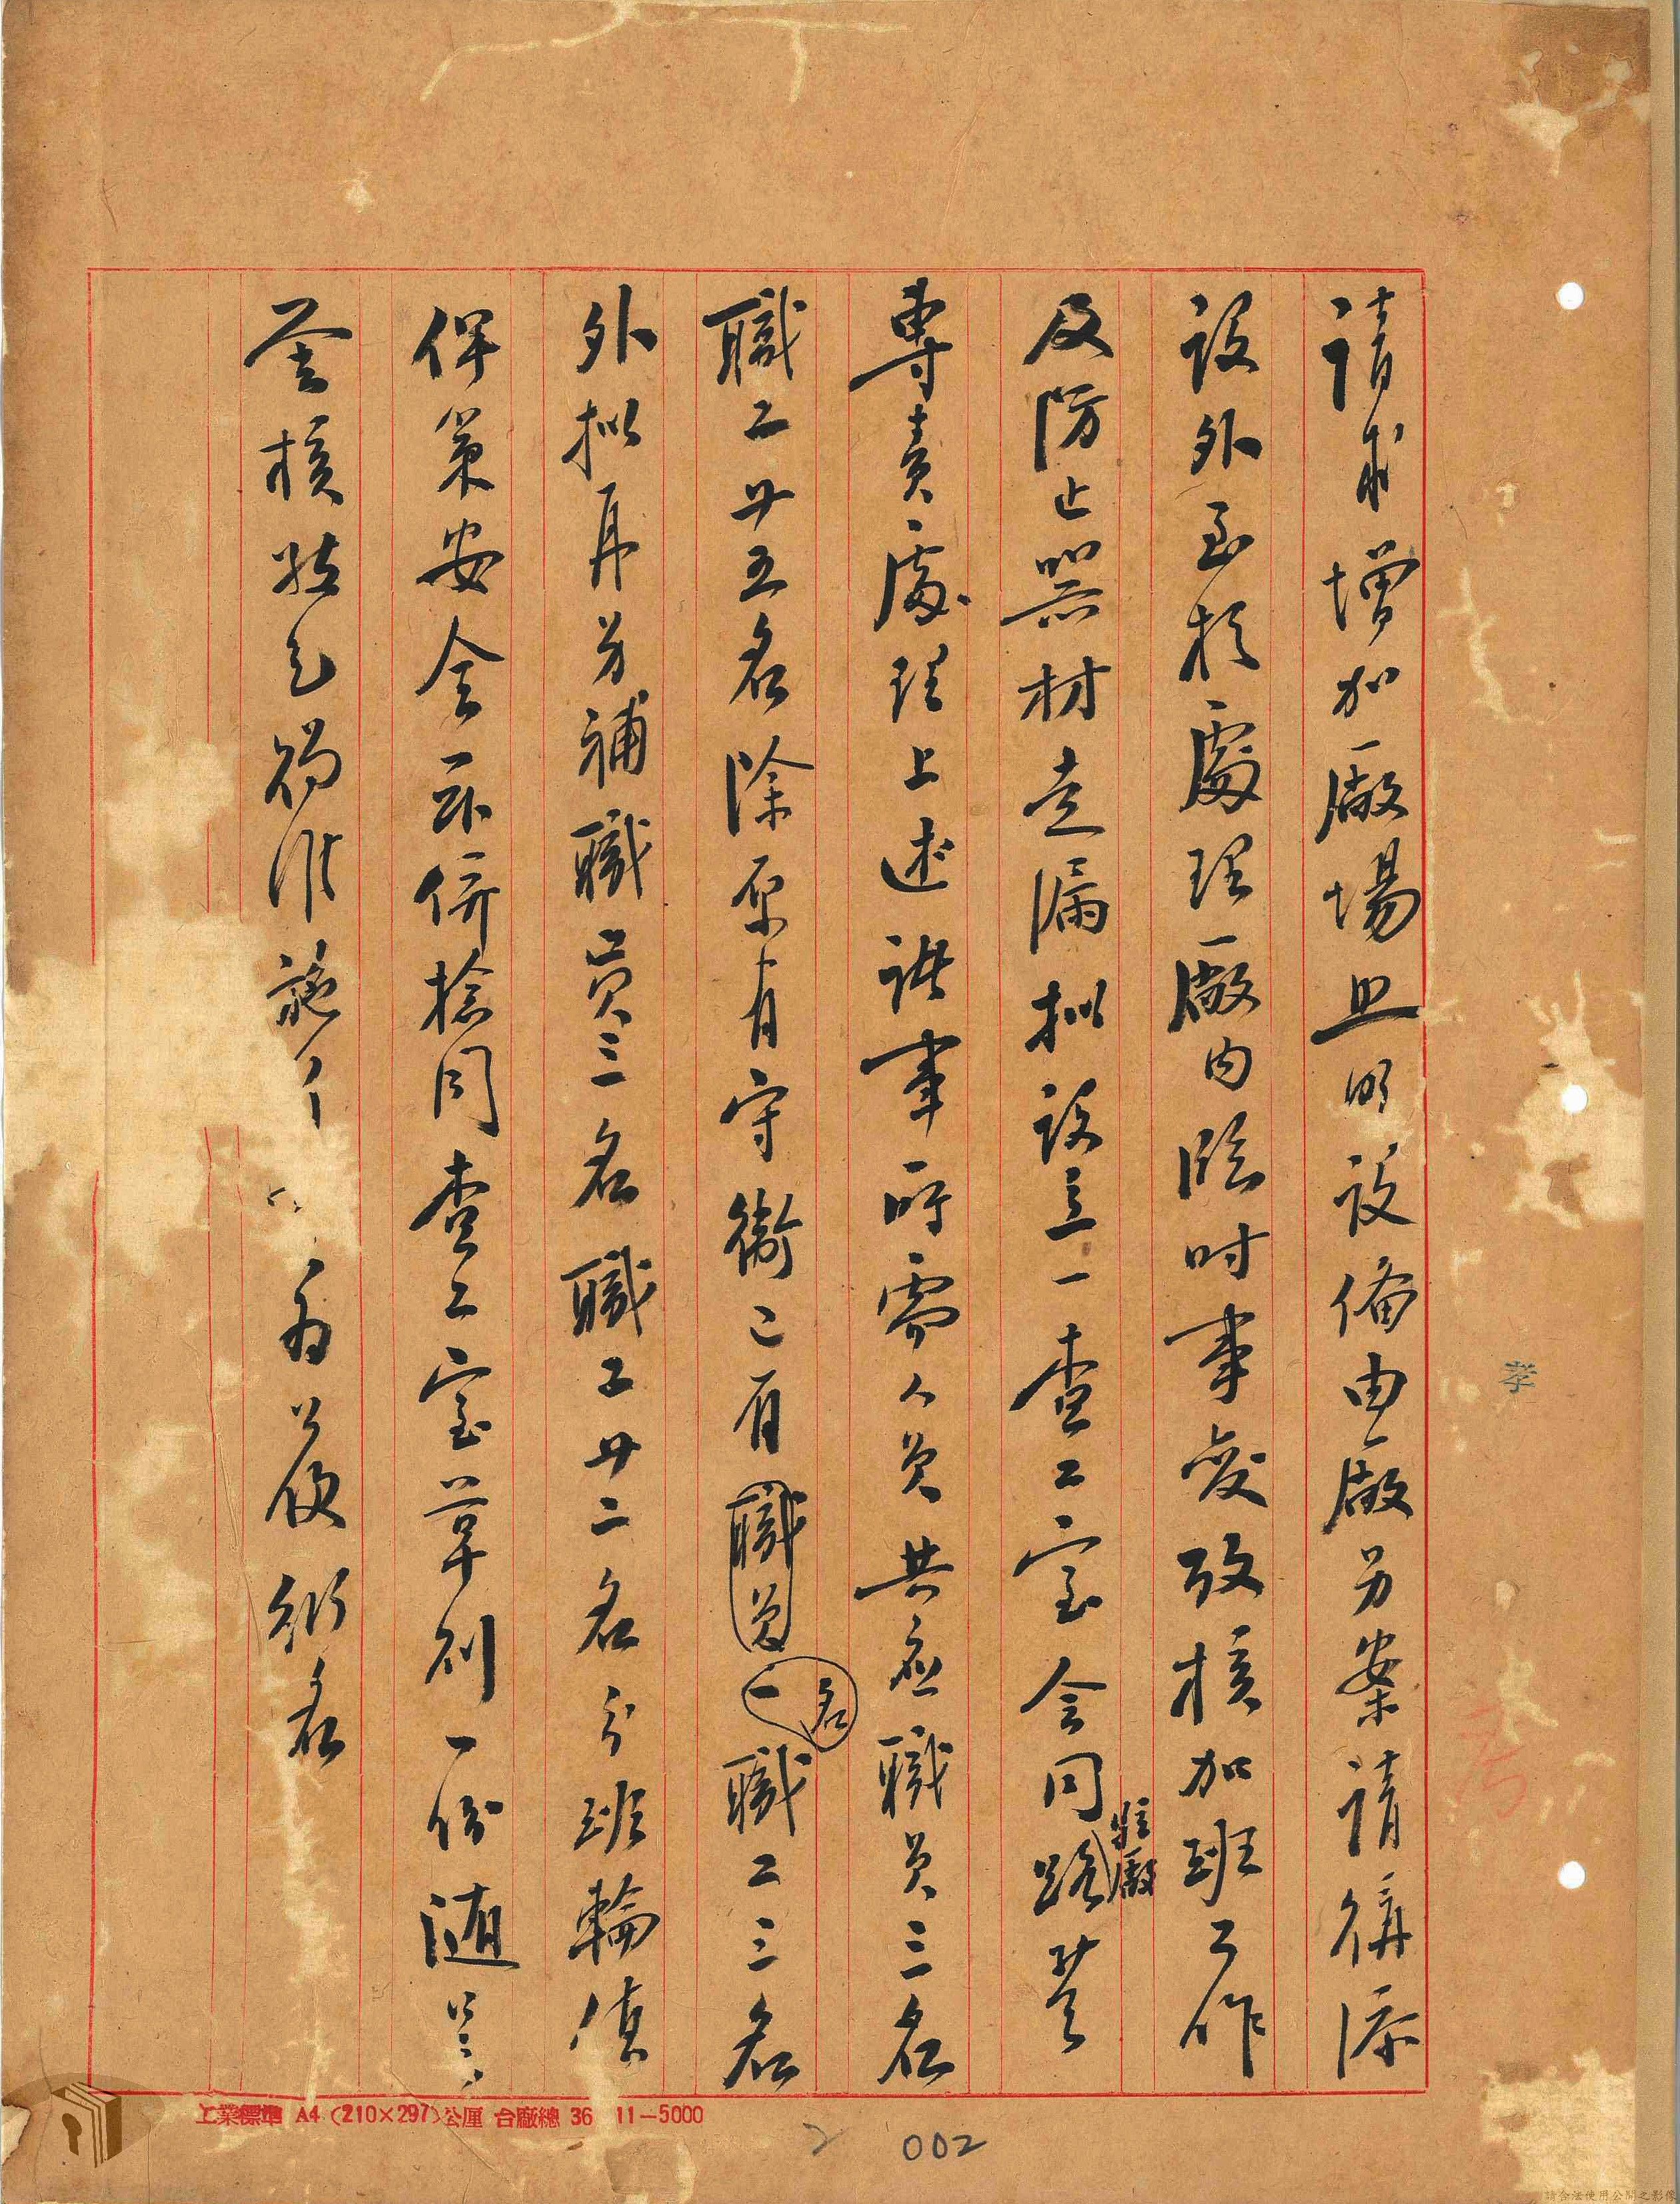 請求增加廠場照明設備由廠另案請稱添
設外至於處理廠內臨時事變攷核加班工作
及防止器材走漏擬設立一查工室會同駐廠路警
專責處理上述諸事所需人員共應職員三名
職工廿五名除原有守衛已有職員一名職工三名
外擬再另補職員三名職工廿二名分班輪值
俾策安全一併檢同查工室草則一份隨呈
鑒核敬乞 准 為荷
工業標準 A4 (210×297)公厘 台廠總 36 11-5000
2 002
孝
請合法使用公開之影像